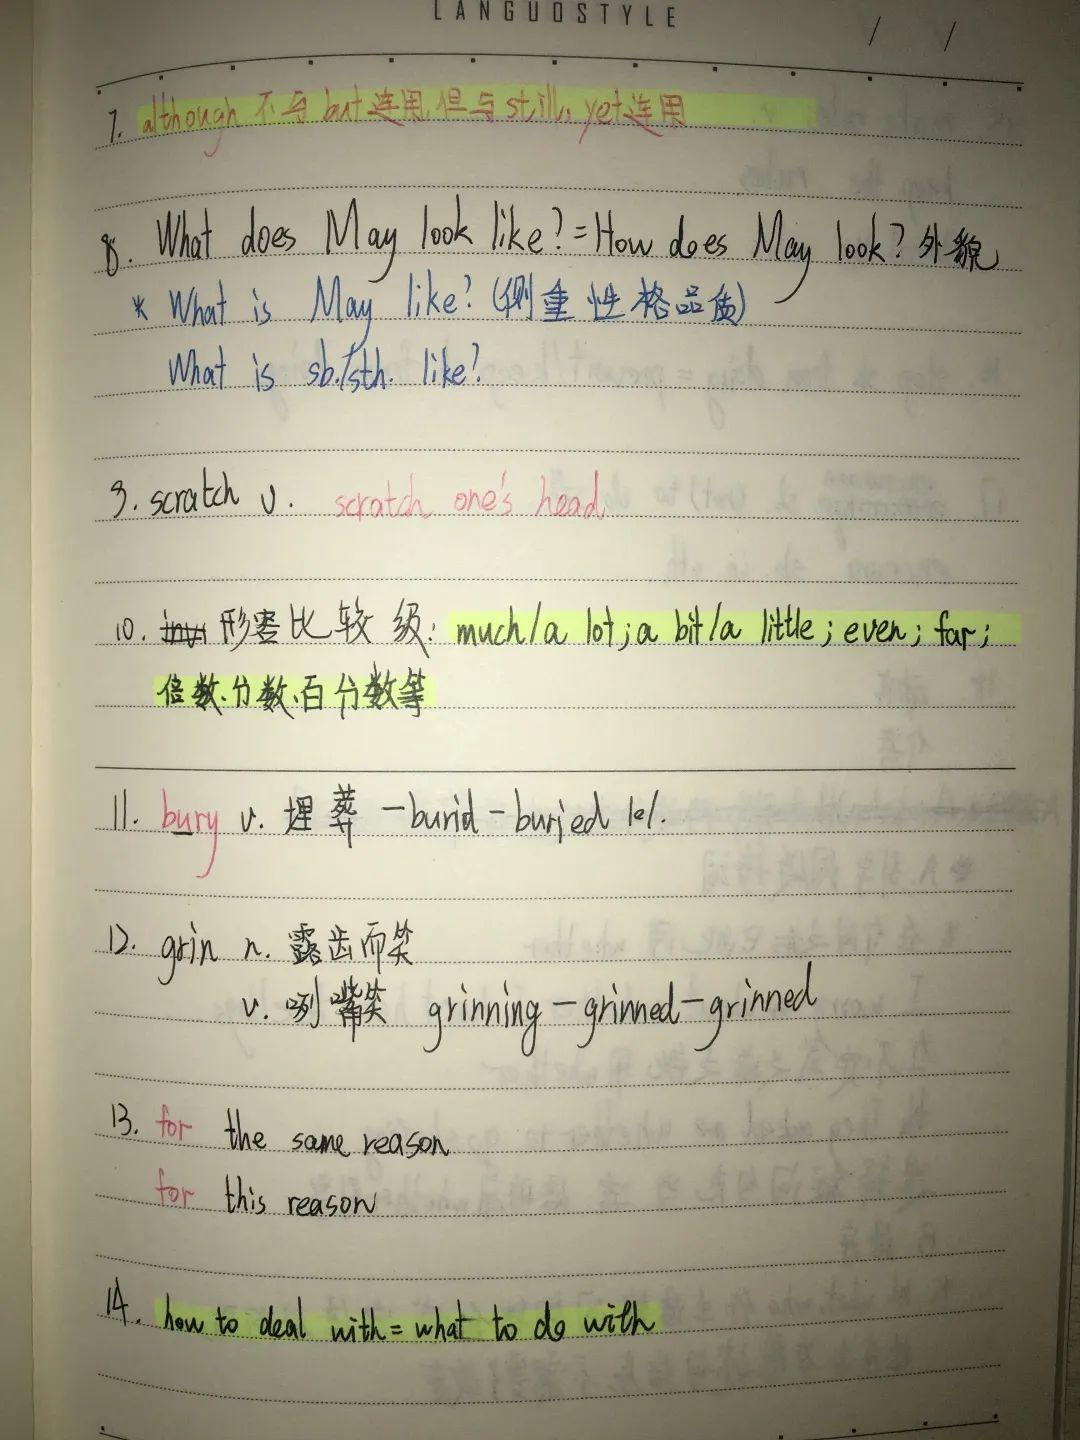 LANGUOSTYLE
/ /
7. although 不与 but 连用,但与 still, yet连用
8. What does May look like?=How does May look? 外貌
* What is May like? (侧重性格品质)
What is sb./sth. like?
9. scratch v. scratch one's head
10. 形容比较级: much/a lot; a bit/a little; even; far;
倍数、分数、百分数等
11. bury v. 埋葬 -burid-buried /e/.
12. grin n. 露齿而笑
v. 咧嘴笑 grinning-grinned-grinned
13. for the same reason
for this reason
14. how to deal with= what to do with